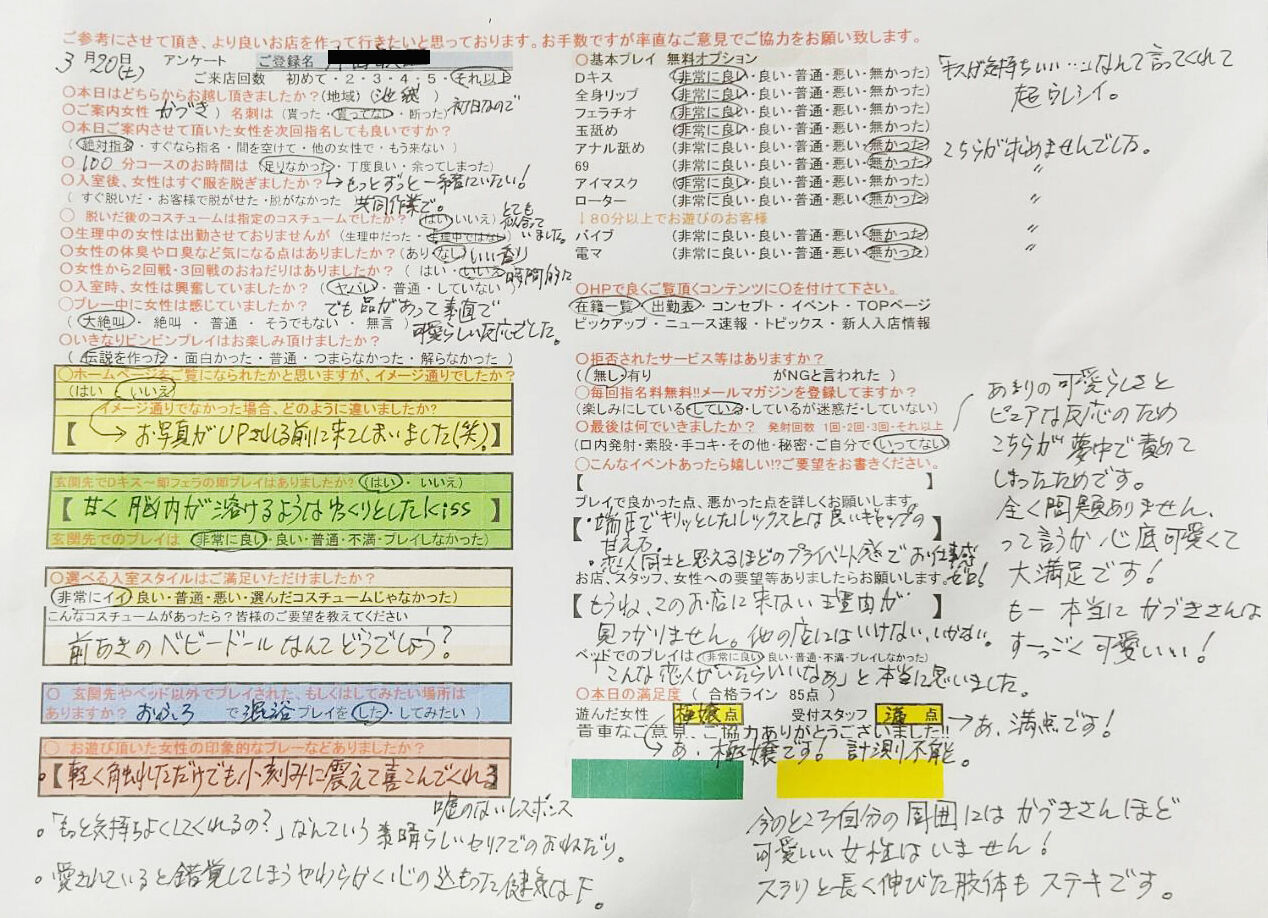 ご参考にさせて頂き、より良いお店を作って行きたいと思っております。お手数ですが率直なご意見でご協力をお願い致します。
3月20日(土) アンケート ご登録名
ご来店回数 初めて・2・3・4・5・それ以上
○本日はどちらからお越し頂きましたか?(地域)( 池袋 )
○ご案内女性( かづき )名刺は(貰った・貰ってない・断った) 初日なので
○本日ご案内させて頂いた女性を次回指名しても良いですか?
( 絶対指名・すぐなら指名・間を空けて・他の女性で・もう来ない )
○ 100 分コースのお時間は(足りなかった・丁度良い・余ってしまった)
→もっとずっと一緒にいたい!
○入室後、女性はすぐ服を脱ぎましたか?
( すぐ脱いだ・お客様で脱がせた・脱がなかった ) 共同作業で。
○ 脱いだ後のコスチュームは指定のコスチュームでしたか?(はい・いいえ) とても似合っていました。
○生理中の女性は出勤させておりませんが(生理中だった・生理中ではない)
○女性の体臭や口臭など気になる点はありましたか?(あり・なし) いい香り
○女性から2回戦・3回戦のおねだりはありましたか?( はい・いいえ )
○入室時、女性は興奮していましたか?( ヤバい・普通・していない )
○プレー中に女性は感じていましたか?
( 大絶叫・ 絶叫 ・ 普通 ・ そうでもない ・ 無言 )
でも品があって素直で可愛らしい反応でした。
○いきなりビンビンプレイはお楽しみ頂けましたか?
( 伝説を作った・面白かった・普通・つまらなかった・解らなかった )
○ホームページをご覧になられたかと思いますが、イメージ通りでしたか?
(はい ・ いいえ)
イメージ通りでなかった場合、どのように違いましたか?
【 → お写真がUPされる前に来てしまいました(笑) 】
玄関先でDキス〜即フェラの即プレイはありましたか?(はい・いいえ)
【 甘く脳内が溶けるようなゆっくりとしたkiss 】
玄関先でのプレイは(非常に良い・良い・普通・不満・プレイしなかった)
○選べる入室スタイルはご満足いただけましたか?
(非常にイイ・良い・普通・悪い・選んだコスチュームじゃなかった)
こんなコスチュームがあったら?皆様のご要望を教えてください
前あきのベビードールなんてどうでしょう?
○ 玄関先やベッド以外でプレイされた、もしくはしてみたい場所は
ありますか? おふろ で 混浴 プレイを( した・してみたい )
○ お遊び頂いた女性の印象的なプレーなどありましたか?
【軽く触れただけでも小刻みに震えて喜こんでくれる】
嘘のないレスポンス
。「もっと気持ちよくしてくれるの?」なんていう素晴らしいセリフでのおねだり。
。愛されていると錯覚してしまうやわらかく心の込もった健気なF。
○基本プレイ 無料オプション
Dキス (非常に良い・良い・普通・悪い・無かった)
「キスが気持ちいい…」なんて言ってくれて
超うレシイ。
全身リップ (非常に良い・良い・普通・悪い・無かった)
フェラチオ (非常に良い・良い・普通・悪い・無かった)
玉舐め (非常に良い・良い・普通・悪い・無かった)
アナル舐め (非常に良い・良い・普通・悪い・無かった) こちらが求めませんでした。
69 (非常に良い・良い・普通・悪い・無かった) 〃
アイマスク (非常に良い・良い・普通・悪い・無かった)
ローター (非常に良い・良い・普通・悪い・無かった) 〃
↓80分以上でお遊びのお客様
バイブ (非常に良い・良い・普通・悪い・無かった) 〃
電マ (非常に良い・良い・普通・悪い・無かった) 〃
○HPで良くご覧頂くコンテンツに○を付けて下さい。
在籍一覧・出勤表・コンセプト・イベント・TOPページ
ピックアップ・ニュース速報・トピックス・新人入店情報
○拒否されたサービス等はありますか?
( 無し・有り がNGと言われた )
○毎回指名料無料!!メールマガジンを登録してますか?
(楽しみにしている・している・しているが迷惑だ・していない)
○最後は何でいきましたか? 発射回数 1回・2回・3回・それ以上
(口内発射・素股・手コキ・その他・秘密・ご自分で・いってない)
あまりの可愛らしさと
ピュアな反応のため
こちらが夢中で責めて
しまったためです。
全く問題ありません、
って言うか心底可愛くて
大満足です!
もー本当にかづきさんは
すーっごく可愛いい!
○こんなイベントあったら嬉しい!?ご要望をお書きください。
プレイで良かった点、悪かった点を詳しくお願いします。
【・端正でキリッとしたルックスとは良いギャップの甘え方。
・恋人同士と思えるほどのプライベート感でお仕事感ゼロ!】
お店、スタッフ、女性への要望等ありましたらお願いします。
【もうね、このお店に来ない理由が
見つかりません。他の店にはいけない、いかない。】
ベッドでのプレイは(非常に良い・良い・普通・不満・プレイしなかった)
「こんな恋人がいたらいいなぁ」と本当に思いました。
○本日の満足度 ( 合格ライン 85点 )
遊んだ女性 極嬢 点 受付スタッフ 満 点 →あ、満点です!
貴重なご意見、ご協力ありがとうございました!!
→あ、極嬢です! 計測り不能。
今のところ自分の周囲にはかづきさんほど
可愛いい女性はいません!
スラリと長く伸びた肢体もステキです。